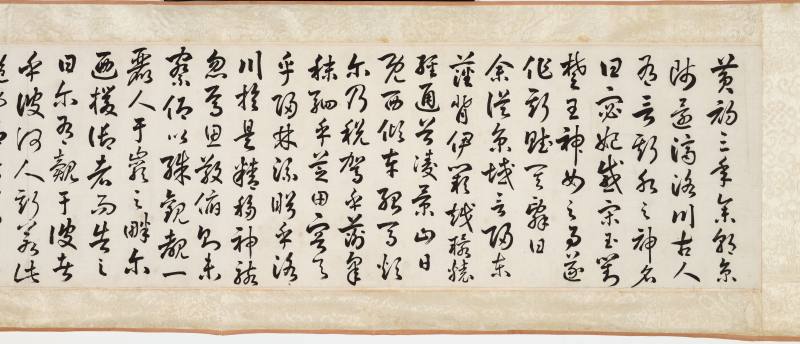 黃初三年余朝京
師還濟洛川古人
有言斯水之神名
曰宓妃感宋玉對
楚王神女之事遂
作斯賦其辭曰
余從京域言歸東
藩背伊闕越轘轅
經通谷凌景山日
既西傾車殆馬煩
爾乃稅駕乎蘅皋
秣駟乎芝田容與
乎陽林流眄乎洛
川於是精移神駭
忽焉思散俯則未
察仰以殊觀覩一
麗人于巖之畔爾
迺援御者而告之
曰爾有覿于彼者
乎彼何人斯若此